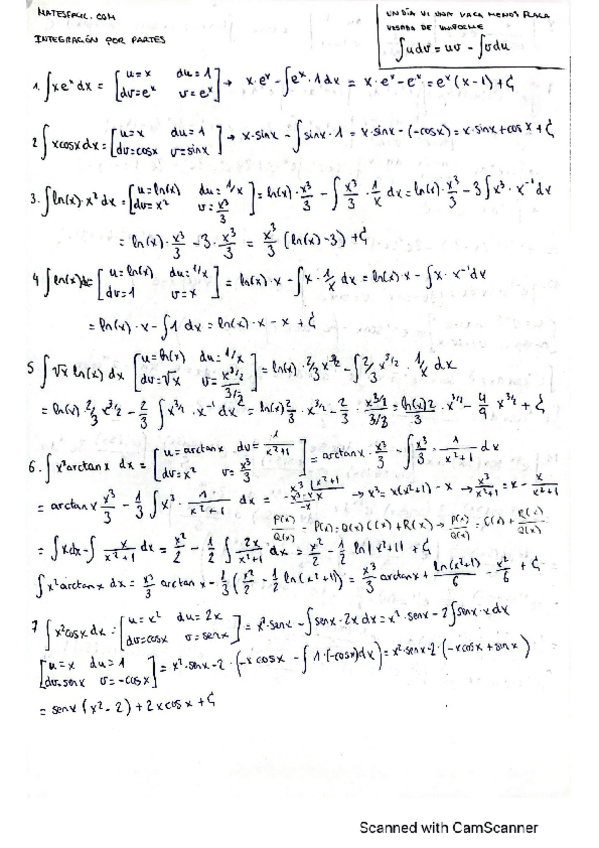 MATESFACIL.COM
INTEGRACIÓN POR PARTES
UN DÍA VI UNA VACA MENOS FLACA
VESTIDA DE UNIFORME
∫udv = uv - ∫vdu
1. ∫xeˣdx = [u=x du=1 dv=eˣ v=eˣ] → x·eˣ - ∫eˣ·1dx = x·eˣ - eˣ = eˣ(x-1) + C
2 ∫xcosxdx = [u=x du=1 dv=cosx v=sinx] → x·sinx - ∫sinx·1 = x·sinx - (-cosx) = x·sinx + cosx + C
3. ∫ln(x)·x²dx = [u=ln(x) du=1/x dv=x² v=x³/3] = ln(x)·x³/3 - ∫x³/3 · 1/x dx = ln(x)·x³/3 - 3∫x³·x⁻¹dx
= ln(x)·x³/3 - 3·x³/3 = x³/3 (ln(x)-3) + C
4 ∫ln(x)dx = [u=ln(x) du=1/x dv=1 v=x] = ln(x)·x - ∫x·1/x dx = ln(x)·x - ∫x·x⁻¹dx
= ln(x)·x - ∫1 dx = ln(x)·x - x + C
5 ∫√x ln(x) dx [u=ln(x) du=1/x dv=√x v=x^3/2 / 3/2] = ln(x)·2/3 x^3/2 - ∫2/3 x^3/2 · 1/x dx
= ln(x)·2/3 x^3/2 - 2/3 ∫x^3/2 · x⁻¹dx = ln(x)2/3 · x^3/2 - 2/3 · x^3/2 / 3/2 = ln(x)2/3 · x^3/2 - 4/9 x^3/2 + C
6. ∫x²arctanx dx = [u=arctanx dv=1/x²+1 dv=x² v=x³/3] = arctanx · x³/3 - ∫x³/3 · 1/x²+1 dx
= arctanx x³/3 - 1/3 ∫x³ · 1/x²+1 dx = x³ |x²+1 -x³-x -x → x³ = x(x²+1) - x → x³/x²+1 = x - x/x²+1
P(x)/Q(x) = P(x) = Q(x)C(x) + R(x) → P(x)/Q(x) = C(x) + R(x)/Q(x)
= ∫xdx - ∫x/x²+1 dx = x²/2 - 1/2 ∫2x/x²+1 dx = x²/2 - 1/2 ln|x²+1| + C
∫x²arctanx dx = x³/3 arctanx - 1/3(x²/2 - 1/2 ln(x²+1)) = x³/3 arctanx + ln(x²+1)/6 - x²/6 + C
7 ∫x²cosxdx = [u=x² du=2x dv=cosx v=senx] = x²·senx - ∫senx·2xdx = x²·senx - 2∫senx·xdx
[u=x du=1 dv=senx v=-cosx] = x²·senx - 2·(-xcosx - ∫1·(-cosx)dx) = x²·senx - 2·(-xcosx + sinx)
= senx(x²-2) + 2xcosx + C
Scanned with CamScanner